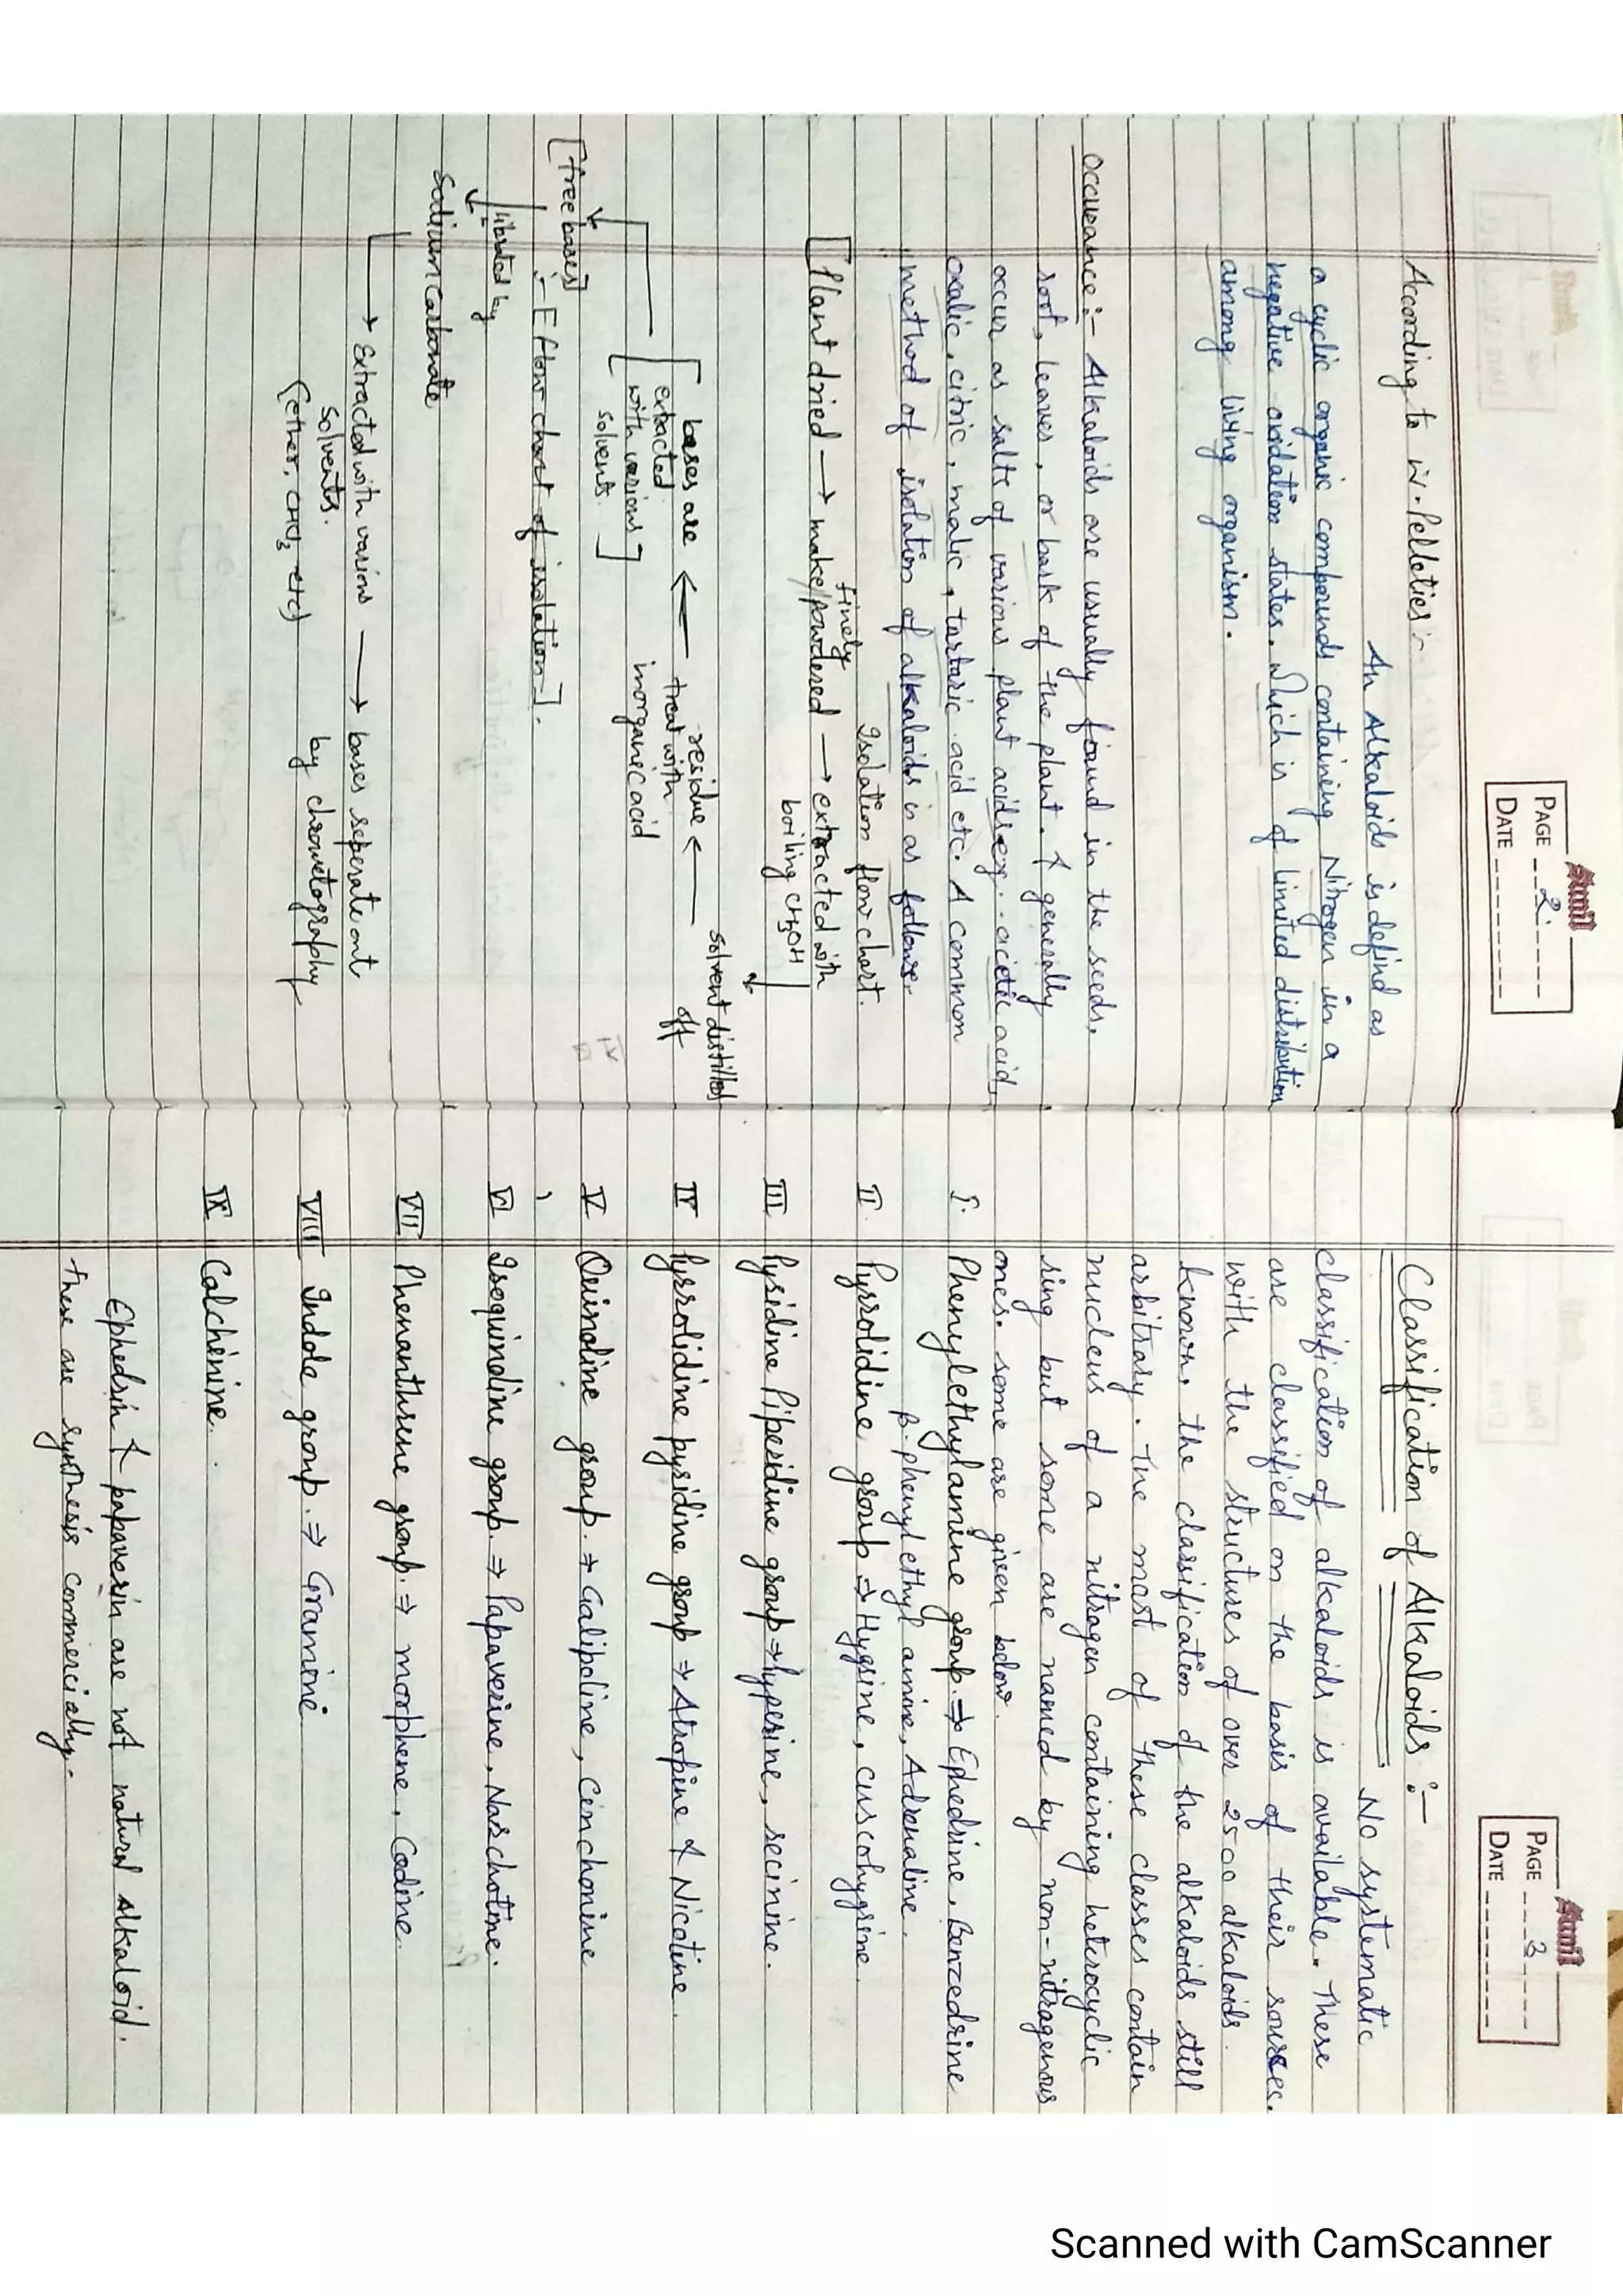 PAGE 2.
DATE
According to W. Pelleties :-
An Alkaloids is defind as
a cyclic organic compounds containing Nitrogen in a
negative oxidation states. which is of limited distribution
among living organism.
Occurance :- Alkaloids are usually found in the seeds,
root, leaves, or bark of the plant. & generally
occur as salts of various plant acids eg. acetic acid,
oxalic, citric, malic, tartaric acid etc. A common
method of isolation of alkaloids is as follows.
Isolation flow chart.
[Plant dried → make/powdered → extracted with
finely
boiling CH3OH
solvent distilled
off
residue ←
bases are ← treat with
inorganic acid
[extracted
with various]
solvents.
[free bases]
:- [flow chart of isolation].
librated by
Sodium carbonate
→ Extracted with various → bases seperate out
solvents. by chromatography
(ether, CHCl3 etc)
PAGE 3
DATE
Classification of Alkaloids :-
No systematic
classification of alkaloids is available. These
are classified on the basis of their sources.
with the structures of over 2500 alkaloids
known. the classification of the alkaloids still
arbitrary. The most of these classes contain
nucleus of a nitrogen containing heterocyclic
ring but some are named by non-nitragenous
ones. some are given below.
I. Phenylethylamine group. ⇒ Ephedrine, Benzedrine
β-phenyl ethyl amine, Adrenaline.
II. Pyrrolidine group ⇒ Hygrine, cuscohygrine.
III Pyridine Piperidine group ⇒ Piperine, recinine.
IV Pyrrolidine pyridine group ⇒ Atropine & Nicotine.
V Quinoline group. ⇒ Galipoline, Cinchonine
VI Isoquinoline group. ⇒ Papaverine, Narchotine.
VII Phenanthrene group. ⇒ morphene, Codine.
VIII Indole group. ⇒ Gramine.
IX Calchinine.
Ephedrin & papaverin are not natural Alkaloid.
these are synthesis commercially.
Scanned with CamScanner